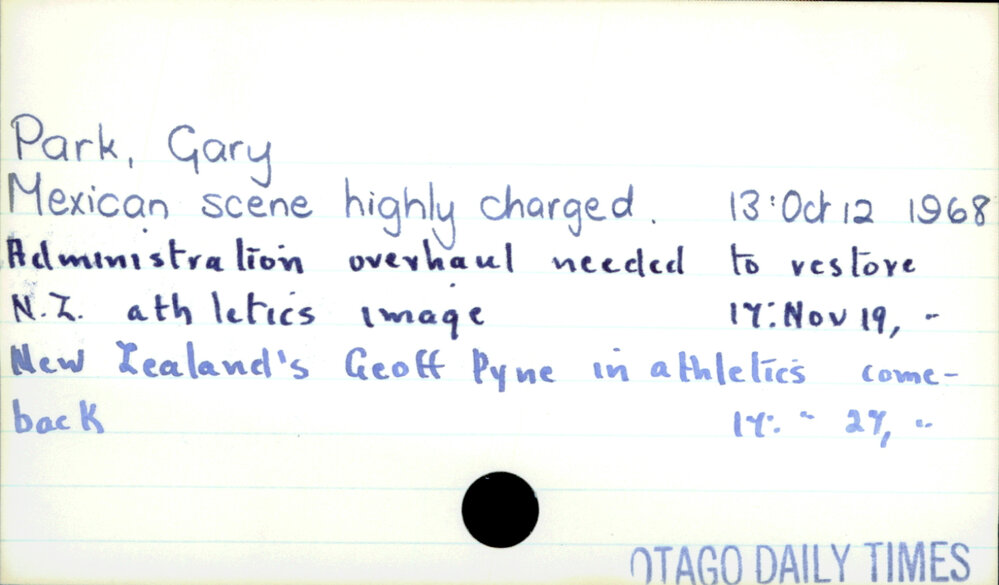 Park, Gary
Mexican scene highly charged. 13:Oct 12 1968
Administration overhaul needed to restore
N.Z. athletics image 17:Nov 19, "
New Zealand's Geoff Pyne in athletics come-
back 17: " 27, "
OTAGO DAILY TIMES